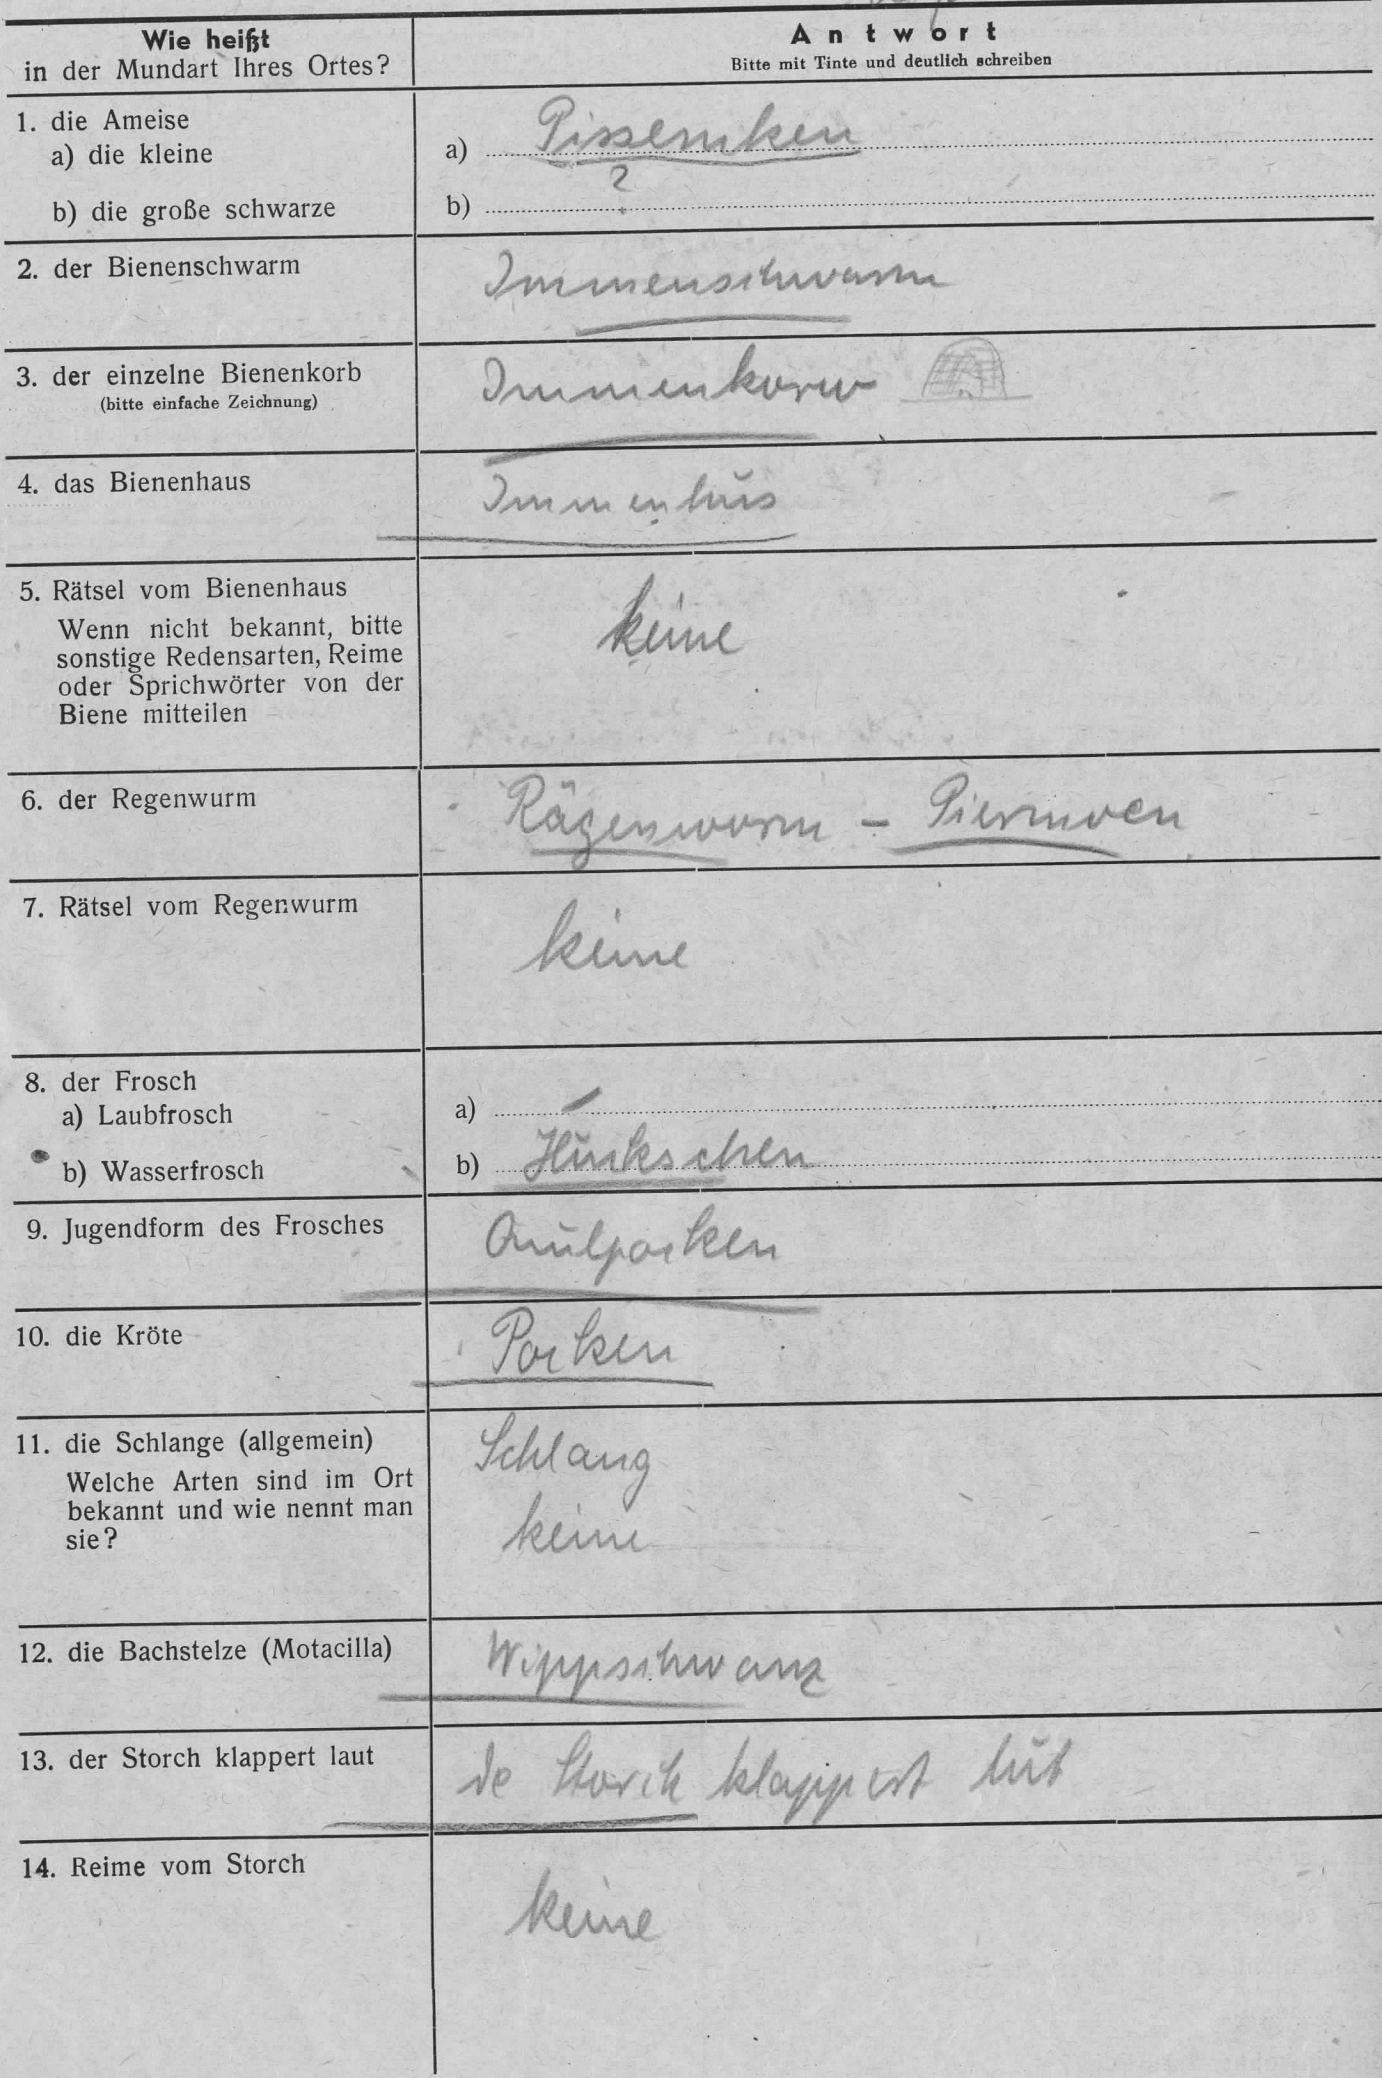 Wie heißt
in der Mundart Ihres Ortes?
Antwort
Bitte mit Tinte und deutlich schreiben
1. die Ameise
a) die kleine
a) Pissemken
?
b) die große schwarze
b)
2. der Bienenschwarm
Immenschwarm
3. der einzelne Bienenkorb
(bitte einfache Zeichnung)
Immenkorw
4. das Bienenhaus
Immenhus
5. Rätsel vom Bienenhaus
Wenn nicht bekannt, bitte
sonstige Redensarten, Reime
oder Sprichwörter von der
Biene mitteilen
keine
6. der Regenwurm
Rägenworm –
7. Rätsel vom Regenwurm
keine
8. der Frosch
a) Laubfrosch
a) –
b) Wasserfrosch
b)
9. Jugendform des Frosches
Quulpocken
10. die Kröte
Pocken
11. die Schlange (allgemein)
Welche Arten sind im Ort
bekannt und wie nennt man
sie?
Schlang
keine
12. die Bachstelze (Motacilla)
Wippschwanz
13. der Storch klappert laut
de Storch klappert lut
14. Reime vom Storch
keine